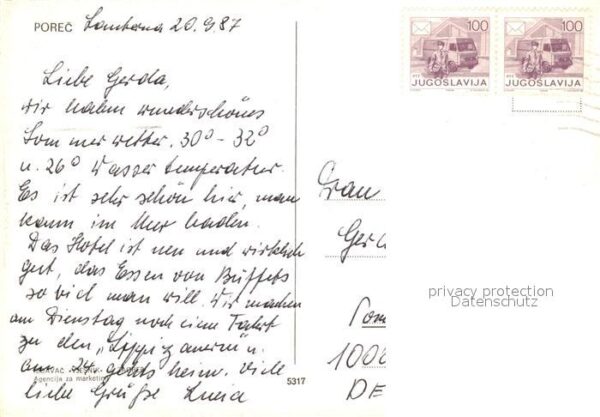 POREČ
Lanterna 20.9.87
Liebe Gerda,
wir haben wunderschönes
Sommerwetter. 30° - 32°
u. 26° Wassertemperatur.
Es ist sehr schön hier, man
kann im Meer baden.
Das Hotel ist neu und wirklich
gut, das Essen von Büffets
so viel man will. Wir machen
am Dienstag noch eine Fahrt
zu den „Lippizanern" u.
am 24. gehts heim. Viele
liebe Grüße
Agencija za marketing
5317
100
100
JUGOSLAVIJA
JUGOSLAVIJA
Frau
privacy protection
Datenschutz
1000
DE